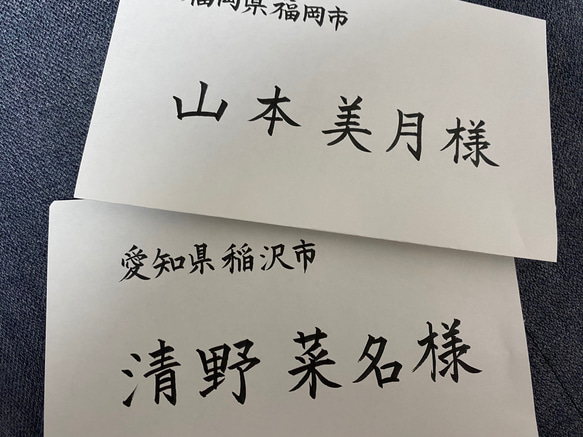 福岡県福岡市
山本美月様
愛知県稲沢市
清野菜名様